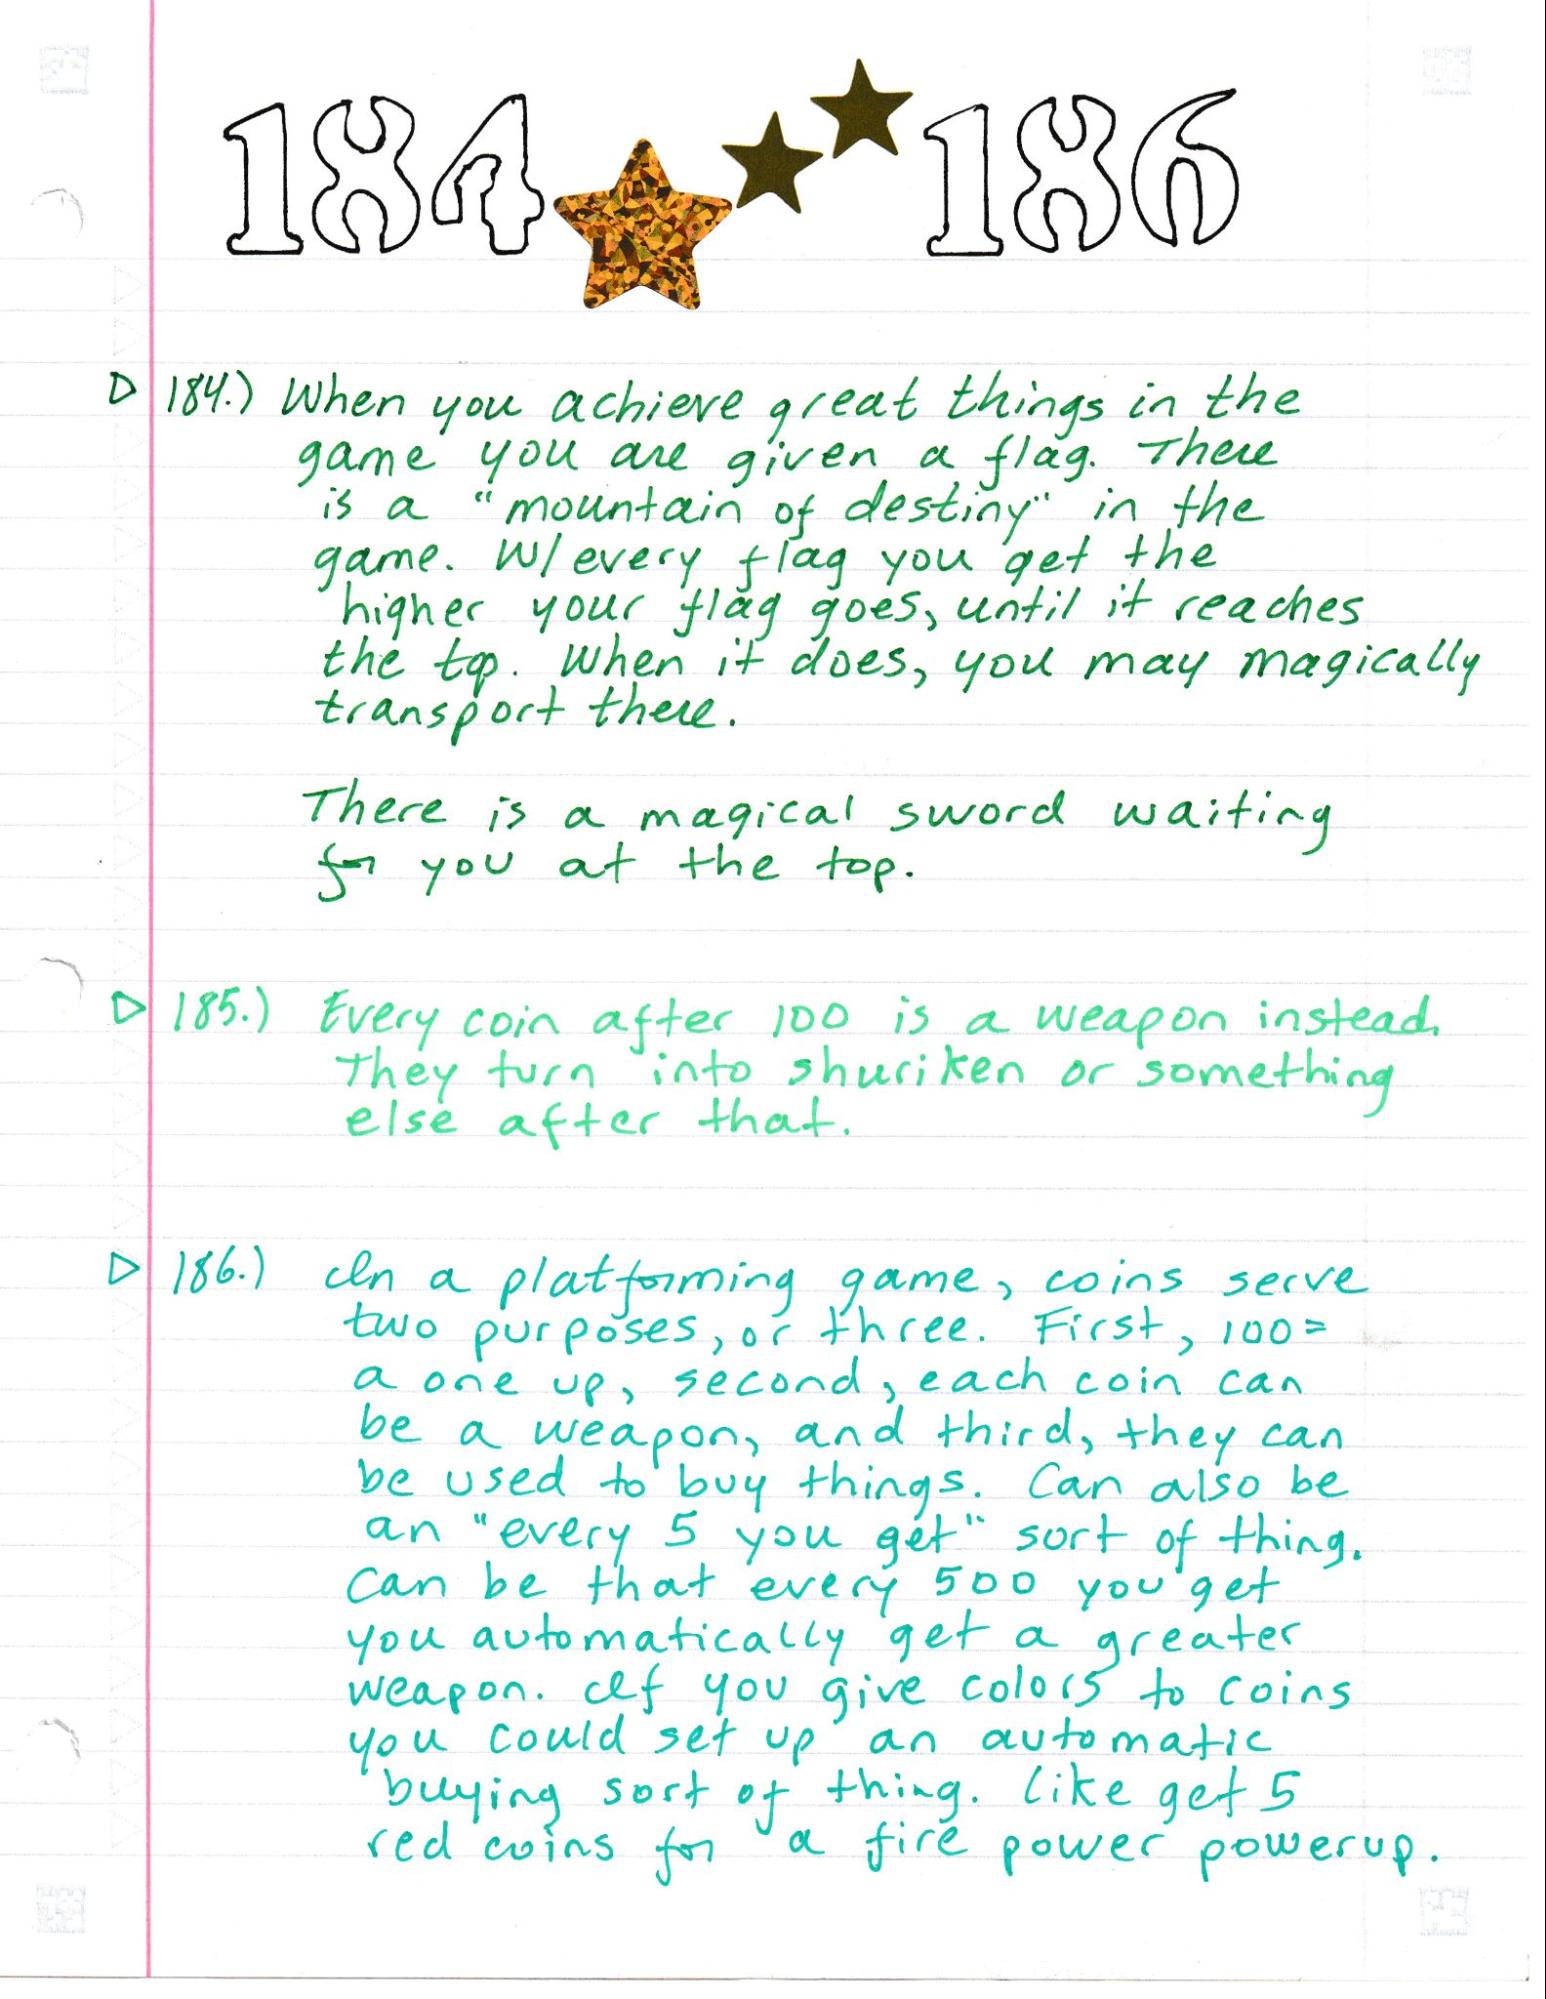 184 186
184.) When you achieve great things in the
game you are given a flag. There
is a "mountain of destiny" in the
game. W/every flag you get the
higher your flag goes, until it reaches
the top. When it does, you may magically
transport there.
There is a magical sword waiting
for you at the top.
185.) Every coin after 100 is a weapon instead.
They turn into shuriken or something
else after that.
186.) In a platforming game, coins serve
two purposes, or three. First, 100=
a one up, second, each coin can
be a weapon, and third, they can
be used to buy things. Can also be
an "every 5 you get" sort of thing.
Can be that every 500 you get
you automatically get a greater
weapon. If you give colors to coins
you could set up an automatic
buying sort of thing. Like get 5
red coins for a fire power powerup.